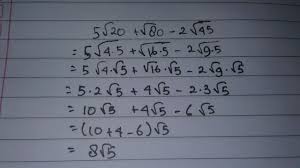 5√20 + √80 - 2√45
= 5√4.5 + √16.5 - 2√9.5
= 5√4.√5 + √16.√5 - 2√9.√5
= 5.2√5 + 4√5 - 2.3√5
= 10√5 + 4√5 - 6√5
= (10+4-6)√5
= 8√5